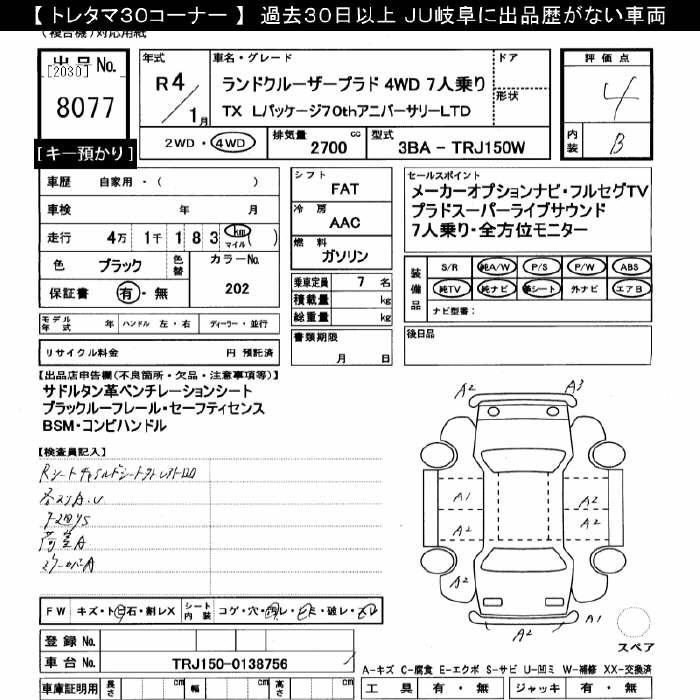 【 トレタマ30コーナー 】 過去30日以上 JU岐阜に出品歴がない車両
(複合機)対応用紙
出品No.
[2030]
8077
[キー預かり]
年式
R4/1月
車名・グレード
ランドクルーザープラド 4WD 7人乗り
TX Lパッケージ70thアニバーサリーLTD
ドア
形状
評価点
4
内装
B
2WD・4WD
排気量 2700 cc
型式 3BA - TRJ150W
車歴 自家用・( )
車検 年 月
走行 4万 1千 1 8 3 km マイル ( )
色 ブラック 色替 カラーNo.
保証書 有・無 202
シフト
FAT
冷房
AAC
燃料
ガソリン
乗車定員 7 名
積載量 kg
総重量 kg
書類期限
月 日
セールスポイント
メーカーオプションナビ・フルセグTV
プラドスーパーライブサウンド
7人乗り・全方位モニター
装備品
S/R 純A/W P/S P/W ABS
純TV 純ナビ 革シート 外ナビ エアB
ナビ型番：
後日品
モデル年式 年 ハンドル 左・右 ディーラー・並行
リサイクル料金 円 預託済
【出品店申告欄(不良箇所・欠品・注意事項等)】
サドルタン革ベンチレーションシート
ブラックルーフレール・セーフティセンス
BSM・コンビハンドル
【検査員記入】
A2 A3
A1 A2
A2 A2
A2
A2 A1
スペア
FW キズ・ト・石・割レX シート内装 コゲ・穴・・・破レ・
登録No.
車台No. TRJ150-0138756
車庫証明用 長さ cm 幅 cm 高さ cm
A-キズ C-腐食 E-エクボ S-サビ U-凹ミ W-補修 XX-交換済
工具 有・無 ジャッキ 有・無